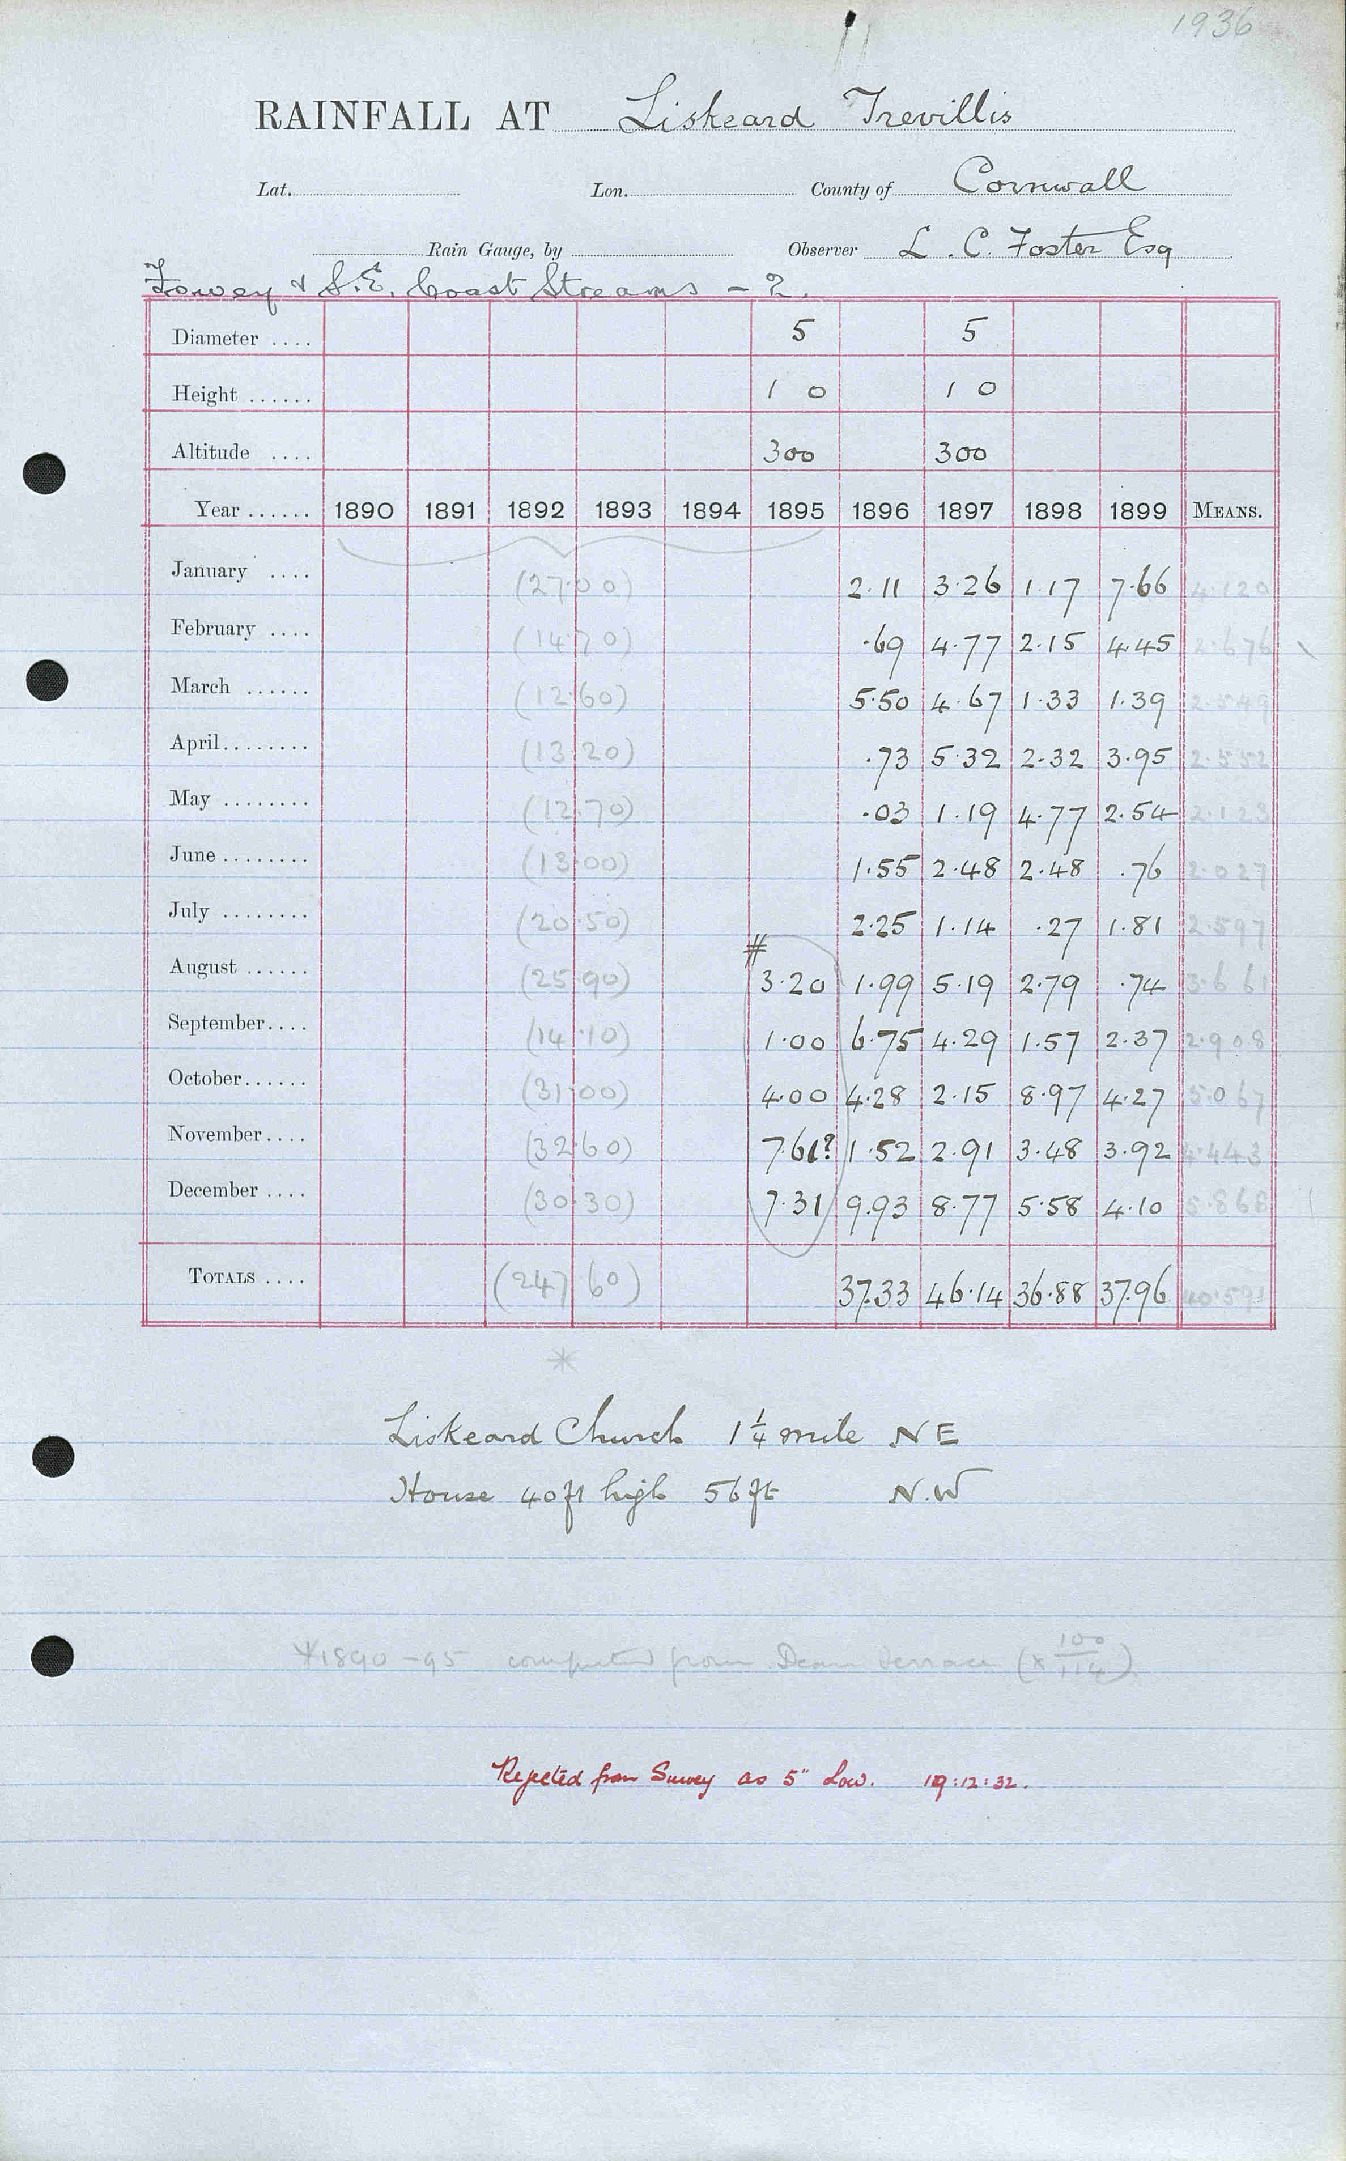 1936
RAINFALL AT Liskeard Trevillis
Lat. Lon. County of Cornwall
Rain Gauge, by Observer L. C. Foster Esq
Fowey & S.E. Coast Streams - 2.
Diameter .... 5 5
Height ...... 1 0 1 0
Altitude .... 300 300
Year ...... 1890 1891 1892 1893 1894 1895 1896 1897 1898 1899 MEANS.
January .... (27.00) 2.11 3.26 1.17 7.66 4.120
February .... (14.70) .69 4.77 2.15 4.45 2.676
March ...... (12.60) 5.50 4.67 1.33 1.39 2.549
April........ (13.20) .73 5.32 2.32 3.95 2.552
May ........ (12.70) .03 1.19 4.77 2.54 2.123
June ........ (13.00) 1.55 2.48 2.48 .76 2.027
July ........ (20.50) 2.25 1.14 .27 1.81 2.597
#
August ...... (25.90) 3.20 1.99 5.19 2.79 .74 3.661
September.... (14.10) 1.00 6.75 4.29 1.57 2.37 2.908
October...... (31.00) 4.00 4.28 2.15 8.97 4.27 5.067
November.... (32.60) 7.61? 1.52 2.91 3.48 3.92 4.443
December .... (30.30) 7.31 9.93 8.77 5.58 4.10 5.868
TOTALS .... (247.60) 37.33 46.14 36.88 37.96 40.591
*
Liskeard Church 1 1/4 mile NE
House 40ft high 56ft N.W
*1890-95 computed from Dean Terrace (x 100/114).
Rejected from Survey as 5" Low. 19:12:32.